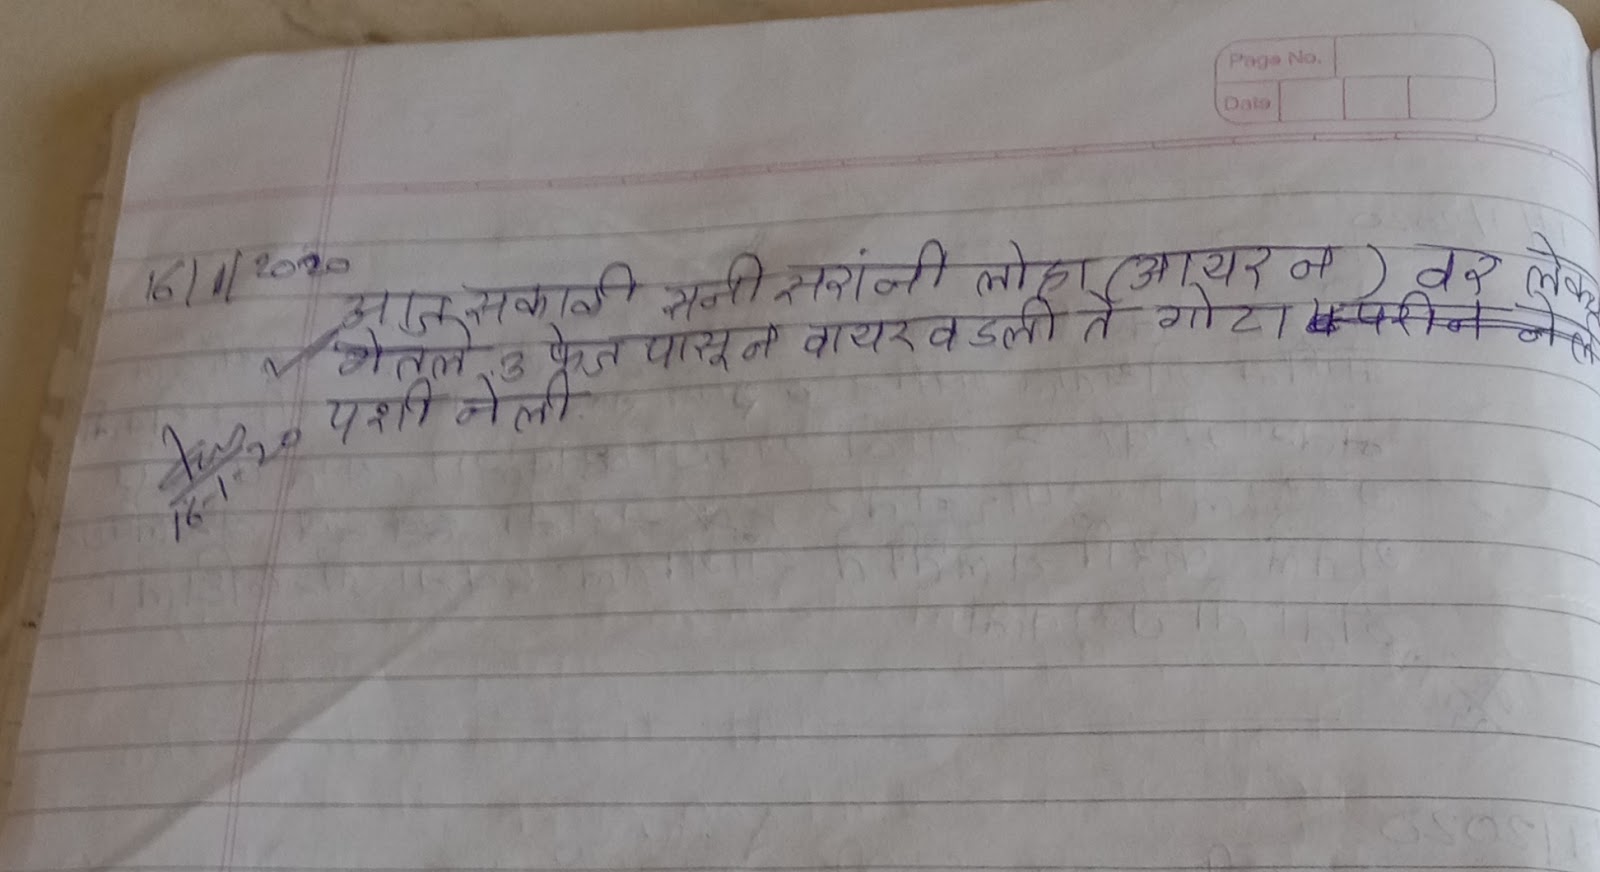 Page No.
Date
16/1/2020
आज सकाळी सनी सरांनी लोहा (आयरन) वर लेक्चर
घेतले 3 फेज पासून वायर वडली ते गोटा
पशी नेली
16-1-20